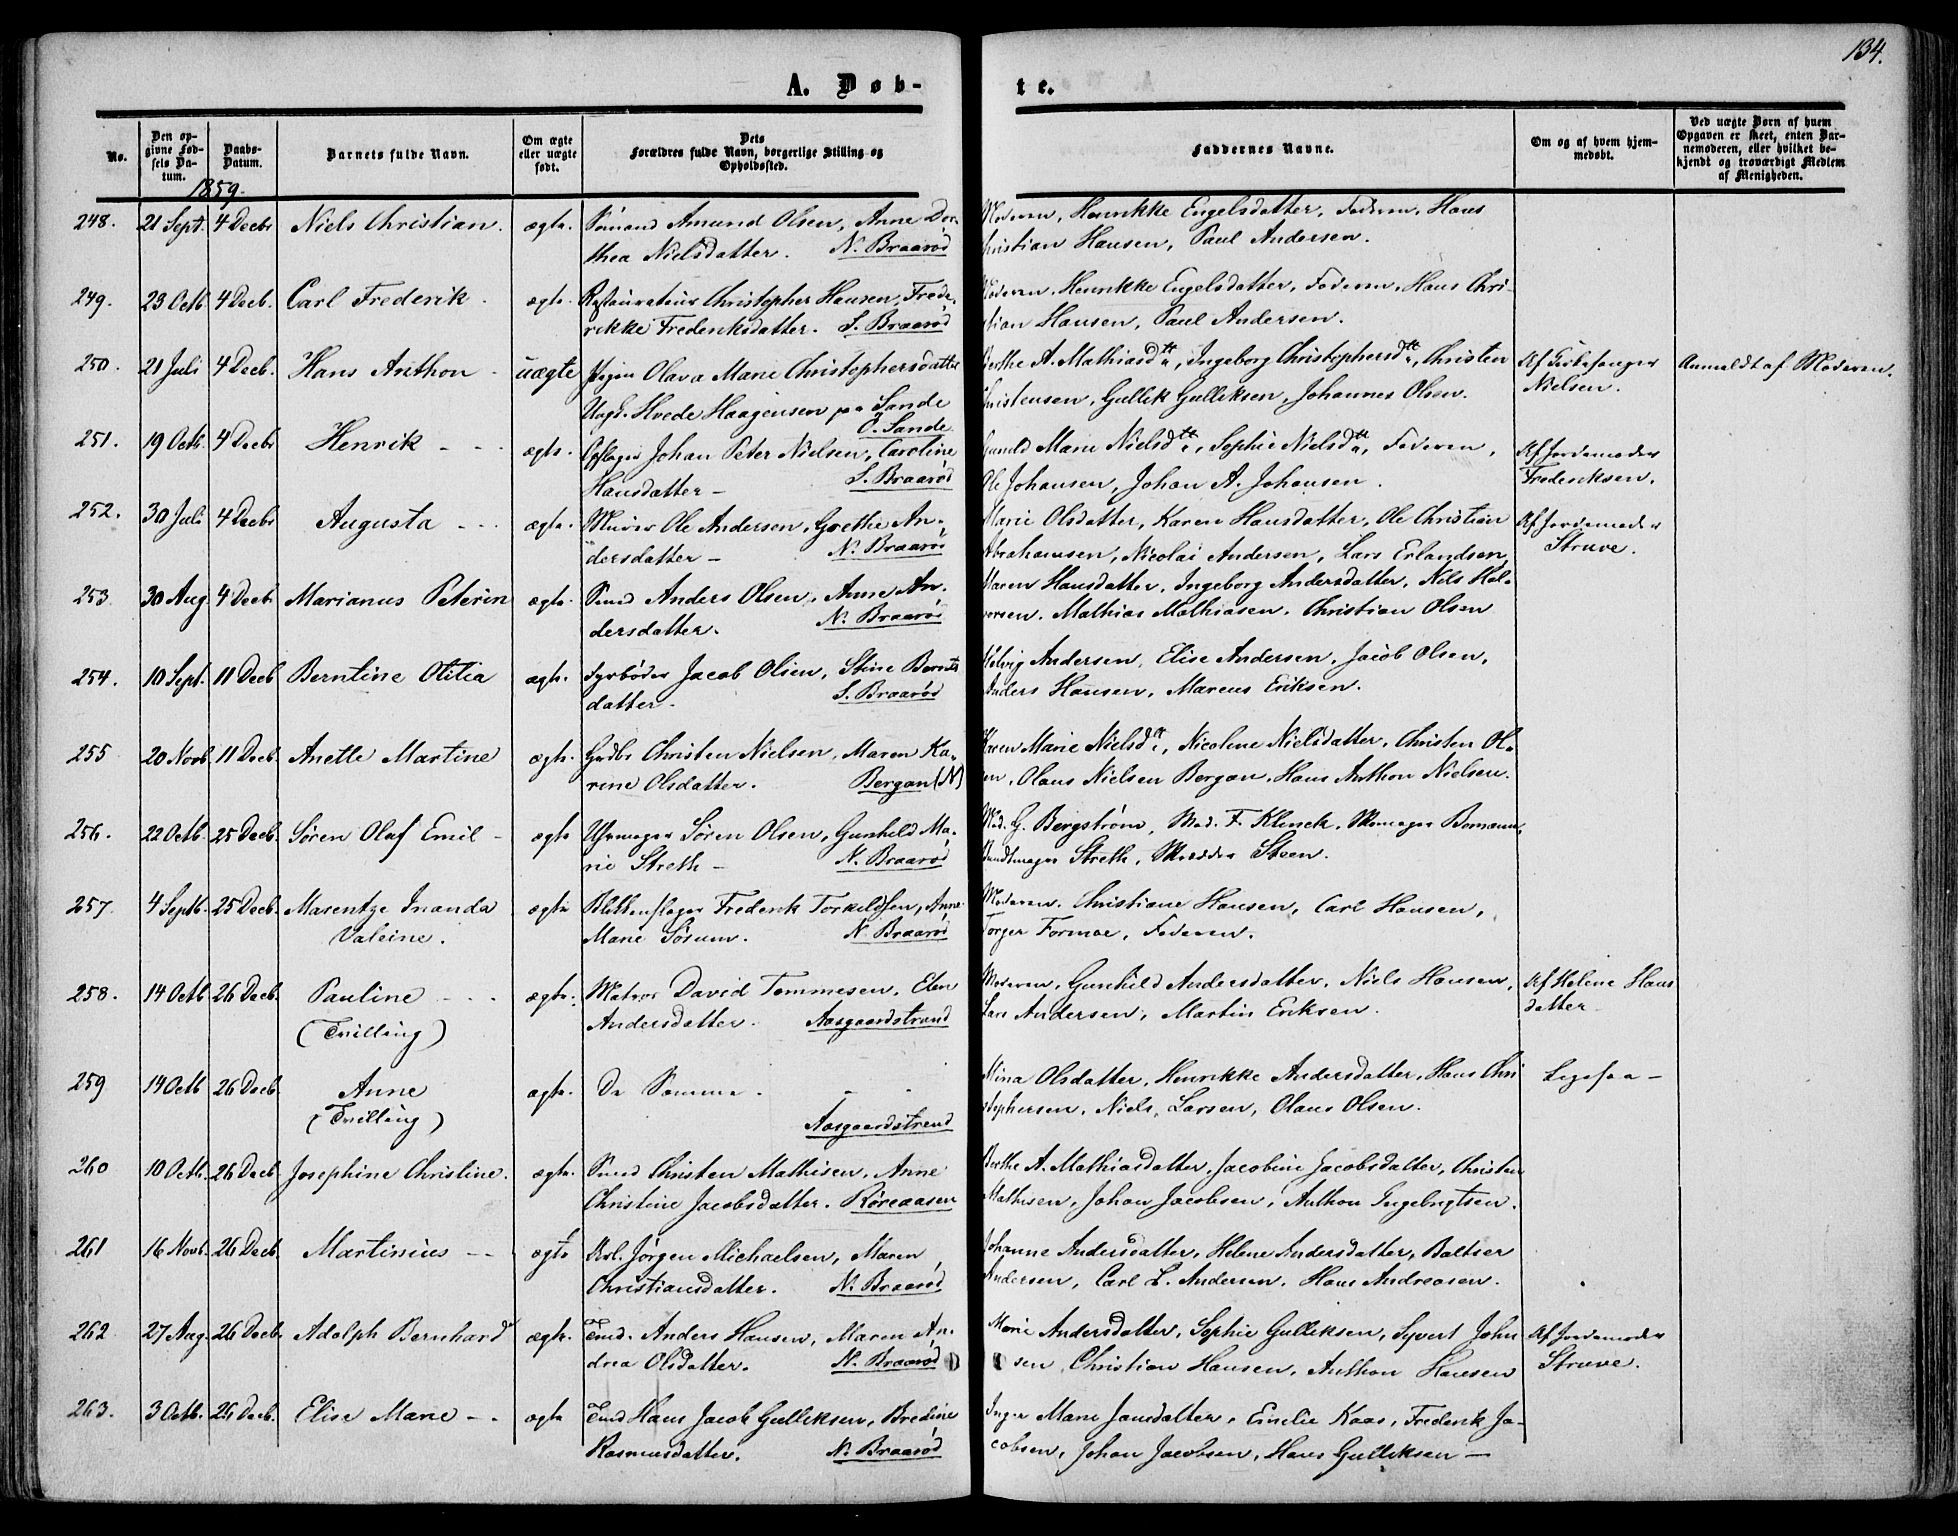 134.
A. Døb-
te.
No.
Den op-
givne Fød-
sels Da-
tum.
Daabs-
Datum.
Barnets fulde Navn.
Om ægte
eller uægte
født.
Dets
Forældres fulde Navn, borgerlige Stilling og
Opholdssted.
Faddernes Navne.
Om og af hvem hjem-
medøbt.
Ved uægte Børn af hvem
Opgaven er skeet, enten Bar-
nemoderen, eller hvilket be-
kjendt og troværdigt Medlem
af Menigheden.
1859.
248. 21 Sept. 4 Decbr Niels Christian. ægte. Sømand Amund Olsen, Anne Dor- Moderen, Henrikke Engelsdatter, Faderen, Hans
thea Nielsdatter. N. Braarød Christian Hansen, Paul Andersen.
249. 23 Octb 4 Decb. Carl Frederik. ægte. Restaurateur Christopher Hansen, Frede- Moderen, Henrikke Engelsdatter, Faderen, Hans Chri-
rikke Frederiksdatter. S. Braarød stian Hansen, Paul Andersen.
250. 21 Juli 4 Decb. Hans Anthon - uægte Pigen Olava Marie Christophersdatter Berthe A. Mathiasdtr, Ingeborg Christophersdtr, Christen Af Kirkesanger Anmeldt af Moderen.
Ungk. Hvede Haagensen paa Sande Christensen, Gullik Gulliksen, Johannes Olsen. Nielsen.
Ø. Sande
251. 19 Octb. 4 Decbr Henrik - - ægte. Johan Peter Nielsen, Caroline Gunild Marie Nielsdtr, Sophie Nielsdtr, Faderen, Af Jordemoder
Hansdatter - S. Braarød Ole Johansen, Johan A. Johansen. Frederiksen.
252. 30 Juli 4 Decbr Augusta - - - ægte. Murer Ole Andersen, Grethe An- Marie Olsdatter, Karen Hansdatter, Ole Christian Af Jordemoder
dersdatter - N. Braarød Abrahamsen, Nicolai Andersen, Lars Erlandsen Struve.
253. 30 Aug. 4 Decb. Marianus Peterin ægte. Smed Anders Olsen, Anne An- Maren Hansdatter, Ingeborg Andersdatter, Nils Hal-
dersdatter. N. Braarød vorsen. Mathias Mathiasen. Christian Olsen
254. 10 Sept. 11 Decb Berntine Otilia ægte. Fyrbøder Jacob Olsen, Stine Bernts- Andersen, Elise Andersen, Jacob Olsen,
datter. S. Braarød Anders Hansen, Marcus Eriksen.
255 20 Novb. 11 Decb. Anette Martine ægte. Grdbr Christen Nielsen, Maren Ka- Karen Marie Nielsdtr, Nicoline Nielsdatter, Christen Ol-
rine Olsdatter. Bergan (N) sen, Olaus Nielsen Bergan, Hans Anthon Nielsen.
256. 22 Octb. 25 Decb. Søren Olaf Emil - ægte Uhrmager Søren Olsen, Gunhild Ma- Mad. G. Bergstrøm, Mad. F. Klinck, Skomager Bomann,
rie Streth - N. Braarød Bundtmager Streth, Skrædder Steen.
257. 4 Septb. 25 Decb. Masentze Inanda ægte Blikkenslager Frederik Torkildsen, Anne Moderen. Christiane Hansen, Carl Hansen,
Valeine. Marie Sösum. N. Braarød Torger Formoe, Faderen.
258. 14 Octb 26 Decb. Pauline - - - ægte. Matros David Tommesen, Elen Moderen, Gunhild Andersdatter, Niels Hansen, Af Helene Hans
(Tvilling) Andersdatter. Aasgaardstrand Lars Andersen, Martin Eriksen. datter
259 14 Octb 26 Decb. Anne ægte. De Samme. - - Mina Olsdatter, Henrikke Andersdatter, Hans Chri Ligesaa -
(Tvilling) Aasgaardstrand stophersen, Niels Larsen, Olaus Olsen.
260 10 Octb. 26 Decb. Josephine Christine. ægte. Smed Christen Mathisen, Anne Berthe A. Mathiasdatter, Jacobine Jacobsdatter, Christen
Christine Jacobsdatter. Röreaasen Mathisen, Johan Jacobsen, Anthon Ingebrigtsen.
261 16 Novb. 26 Decb. Martinius - - ægte Jørgen Michaelsen, Maren Johanne Andersdatter, Helene Andersdatter, Baltser
Christiansdatter. N. Braarød Andersen, Carl L. Andersen, Hans Andreasen.
262 27 Aug. 26 Decb. Adolph Bernhard ægte. Tmd. Anders Hansen, Maren An- Marie Andersdatter, Sophie Gulliksen, Syvert John Af Jordemoder
drea Olsdatter. N. Braarød sen, Christian Hansen, Anthon Hansen Struve.
263. 3 Octb. 26 Decb. Elise Marie - - ægte Tmd Hans Jacob Gulliksen, Bredine Inger Marie Jansdatter, Emelie Kaas, Frederik Ja-
Rasmusdatter. N. Braarød cobsen, Johan Jacobsen, Hans Gulliksen -